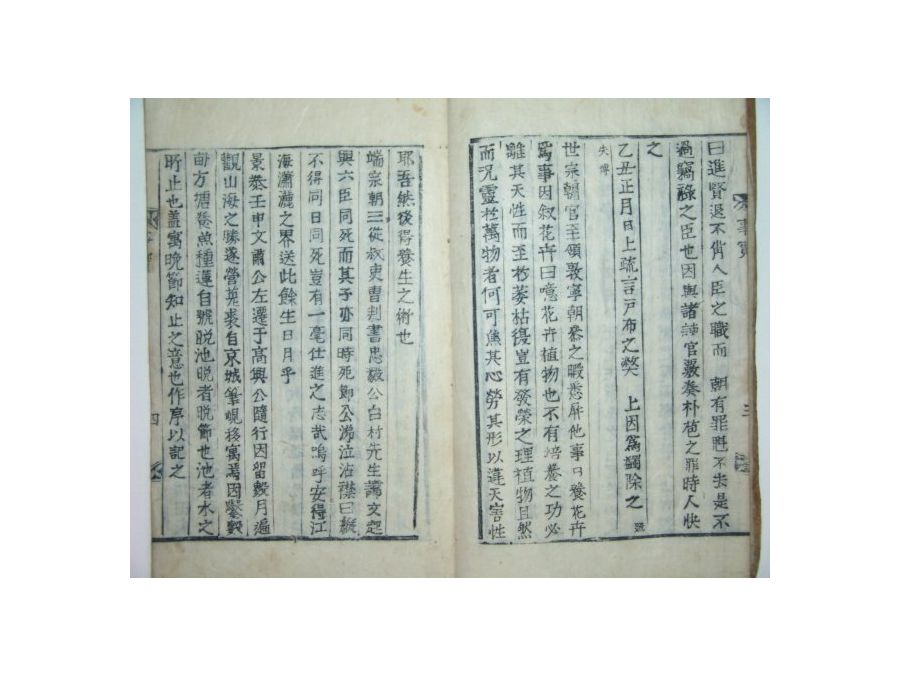 事實
三
曰進賢退不肖人臣之職而 朝有罪魁不去是不
過竊祿之臣也因與諸諫官嚴奏朴苞之罪時人快
之
乙丑正月日上疏言戸布之弊 上因爲蠲除之 疏
失傳
世宗朝官至領敦寧朝叅之暇悉屛他事日養花卉
爲事因叙花卉曰噫花卉植物也不有培養之功必
離其天性而至於萎枯得豈有發榮之理植物且然
而况靈於萬物者何可焦其心勞其形以違天害性
耶吾然後得養生之術也
端宗朝三從叔吏曺判書忠毅公白村先生諱文起
與六臣同死而其子亦同時死節公涕泣沾襟曰縱
不得同日同死豈有一毫仕進之志哉嗚呼安得江
海瀟灑之界送此餘生日月乎
景泰壬申文肅公左遷于高興公隨行因留數月遍
觀山海之勝遂營菟裘自京城筆峴移寓焉因鑿數
畝方塘養魚種蓮自號晩池晩者晩節也池者水之
所止也盖寓晩節知止之意也作序以記之
四